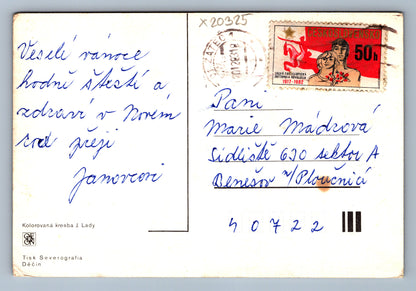 x 20325
ČESKOSLOVENSKO
50h
1917-1982
Veselé vánoce
hodně štěstí a
zdraví v Novém
roce přejí
Janovcovi
Paní
Marie Mádrová
Sídliště 630 sektor A
Benešov n/Ploučnicí
40722
Kolorovaná kresba J. Lady
Tisk Severografia
Děčín